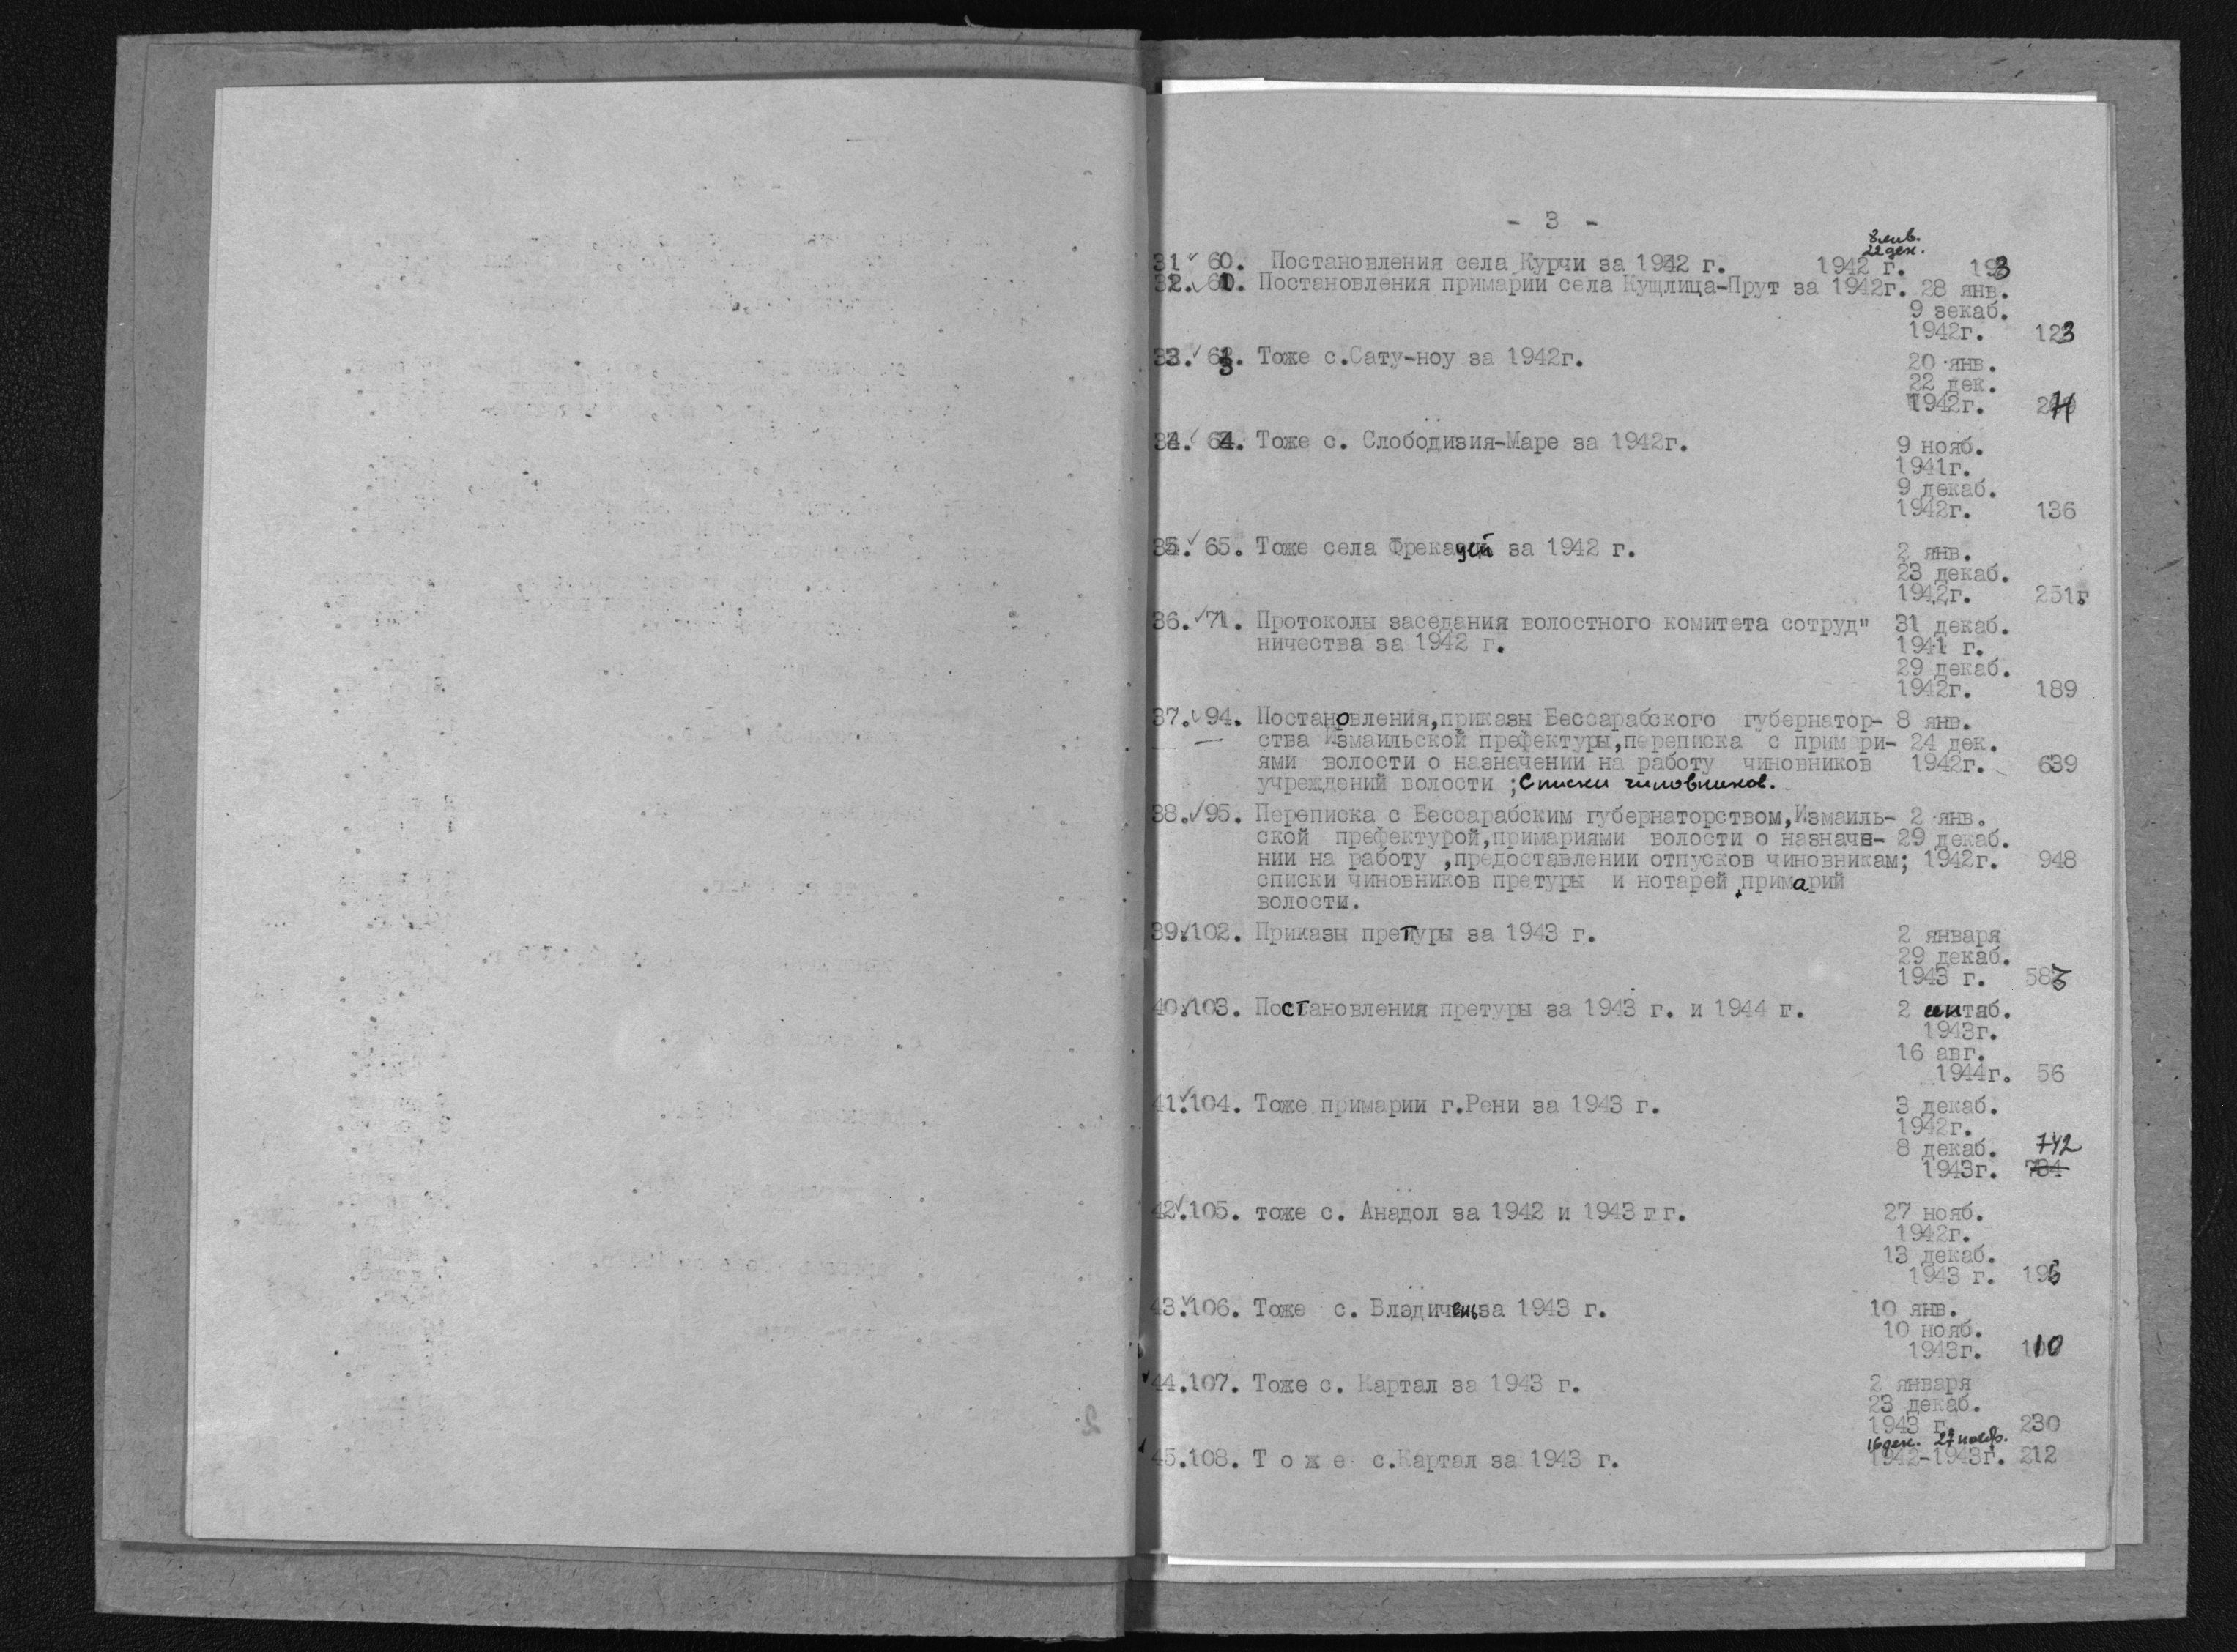 - 3 -
8 янв.
22 дек.
31 60. Постановления села Курчи за 1942 г. 1942 г. 193
32. 61. Постановления примарии села Кущлица-Прут за 1942г. 28 янв.
9 зекаб.
1942г. 123
33. 63. Тоже с.Сату-ноу за 1942г.
20 янв.
22 дек.
1942г.
34. 64. Тоже с. Слободизия-Маре за 1942г.
9 нояб.
1941г.
9 декаб.
1942г. 136
35. 65. Тоже села Фрекацей за 1942 г.
2 янв.
23 декаб.
1942г. 251г
36. 71. Протоколы заседания волостного комитета сотруд" 31 декаб.
ничества за 1942 г. 1941 г.
29 декаб.
1942г. 189
37. 94. Постановления,приказы Бессарабского губернатор- 8 янв.
ства Измаильской префектуры,переписка с примари- 24 дек.
ями волости о назначении на работу чиновников 1942г. 639
учреждений волости ; Списки чиновников.
38. 95. Переписка с Бессарабским губернаторством,Измаиль- 2 янв.
ской префектурой,примариями волости о назначе- 29 декаб.
нии на работу ,предоставлении отпусков чиновникам; 1942г. 948
списки чиновников претуры и нотарей примарий
волости.
39.102. Приказы претуры за 1943 г. 2 января
29 декаб.
1943 г. 583
40.103. Постановления претуры за 1943 г. и 1944 г. 2 октяб.
1943г.
16 авг.
1944г. 56
41.104. Тоже примарии г.Рени за 1943 г. 3 декаб.
1942г.
8 декаб. 742
1943г. 784
42.105. тоже с. Анадол за 1942 и 1943 г г. 27 нояб.
1942г.
13 декаб.
1943 г. 196
43.106. Тоже с. Владичень за 1943 г. 10 янв.
10 нояб.
1943г. 110
44.107. Тоже с. Картал за 1943 г. 2 января
23 декаб.
1943 г. 230
16 дек. 27 нояб.
45.108. Т о ж е с.Картал за 1943 г. 1942-1943г. 212